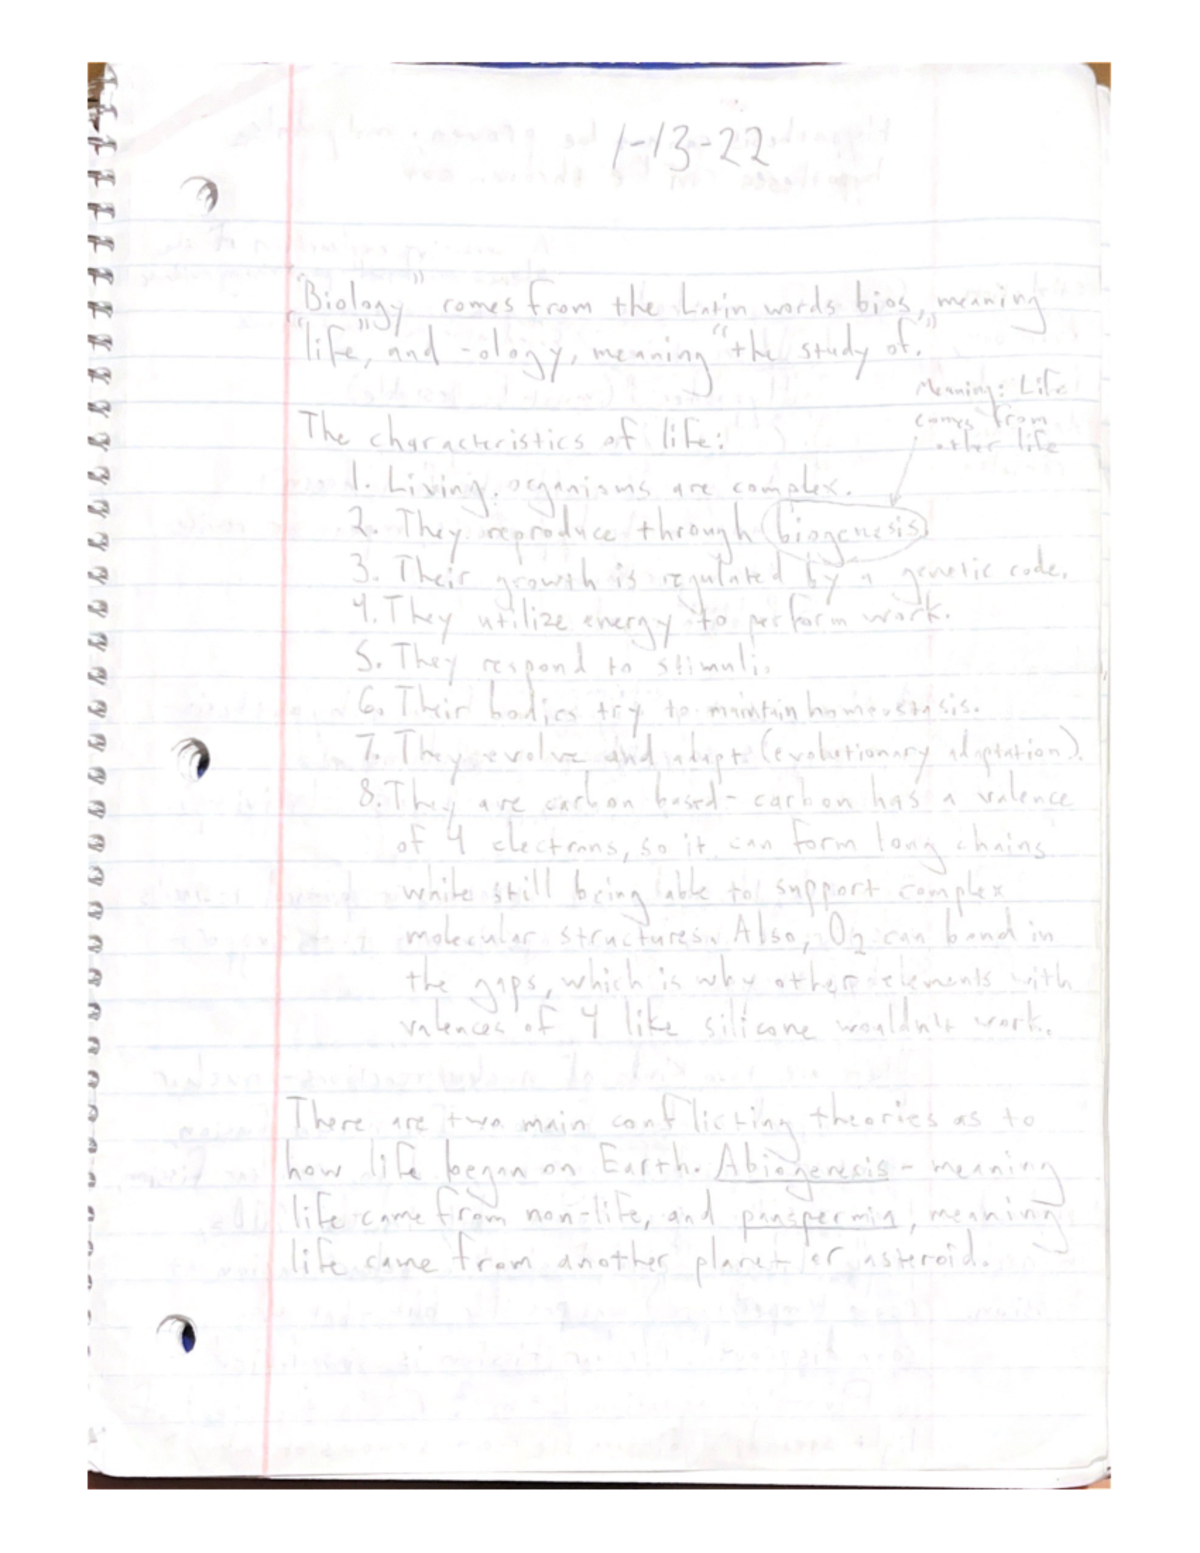 1-13-22
"Biology" comes from the Latin words bios, meaning
"life", and -ology, meaning "the study of."
Meaning: Life
comes from
other life
The characteristics of life:
1. Living organisms are complex.
2. They reproduce through biogenesis.
3. Their growth is regulated by a genetic code.
4. They utilize energy to perform work.
5. They respond to stimuli.
6. Their bodies try to maintain homeostasis.
7. They evolve and adapt (evolutionary adaptation).
8. They are carbon based - carbon has a valence
of 4 electrons, so it can form long chains
while still being able to support complex
molecular structures. Also, O2 can bond in
the gaps, which is why other elements with
valences of 4 like silicone wouldn't work.
There are two main conflicting theories as to
how life began on Earth. Abiogenesis - meaning
life came from non-life, and panspermia, meaning
life came from another planet or asteroid.